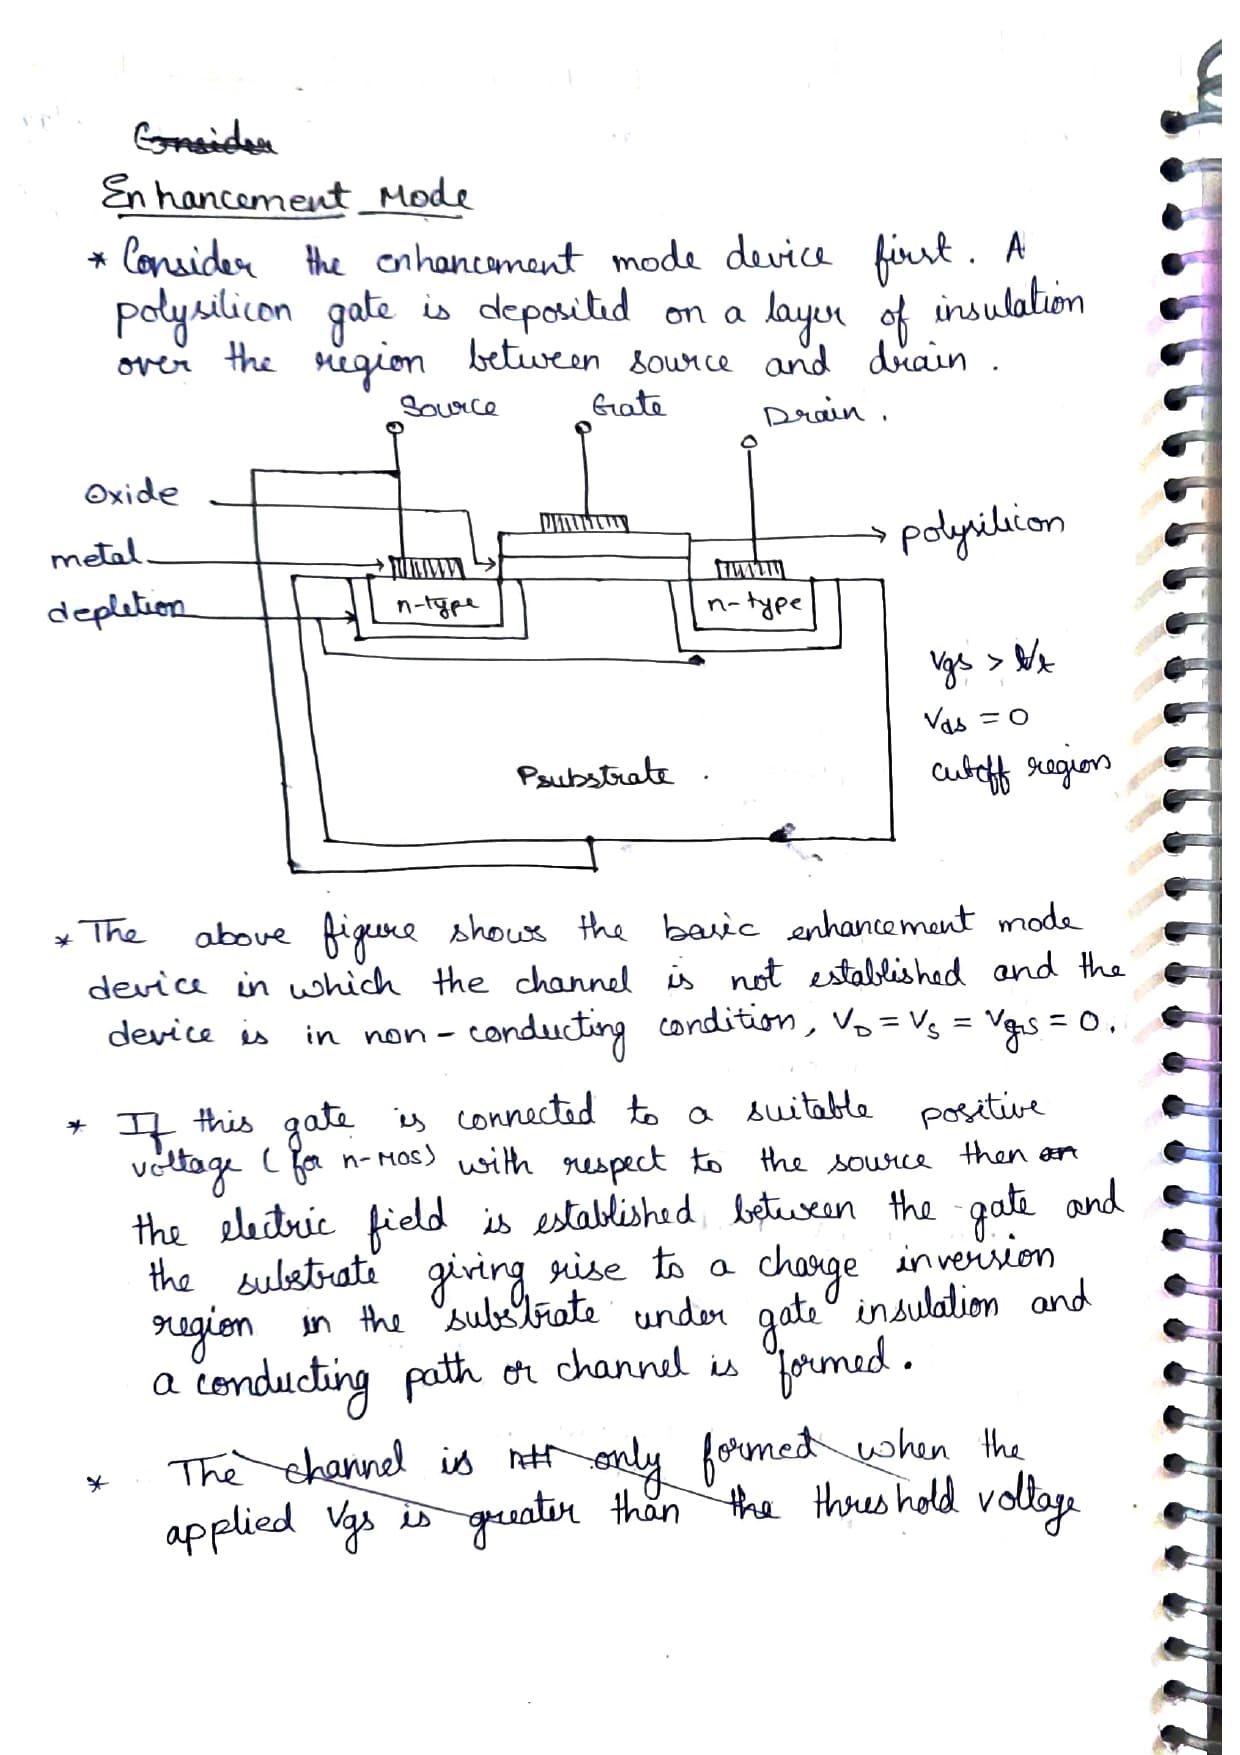 Consider
Enhancement Mode
* Consider the enhancement mode device first. A
polysilicon gate is deposited on a layer of insulation
over the region between source and drain.
Source Gate Drain.
Oxide
polysilicon
metal
depletion
n-type n-type
Vgs > Vt
Vds = 0
cutoff region
Psubstrate.
* The above figure shows the basic enhancement mode
device in which the channel is not established and the
device is in non-conducting condition, VD = VS = VgS = 0.
* If this gate is connected to a suitable positive
voltage (for n-MOS) with respect to the source then an
the electric field is established between the gate and
the substrate giving rise to a charge inversion
region in the substrate under gate insulation and
a conducting path or channel is formed.
* The channel is only formed when the
applied Vgs is greater than the threshold voltage